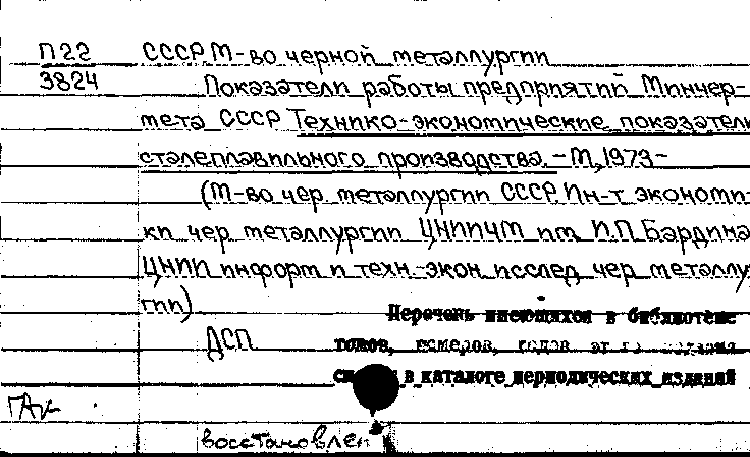 П22 СССР М-во черной металлургии
3824 Показатели работы предприятий Минчер-
мета СССР Технико-экономические показатели
сталеплавильного производства. - М, 1973-
(М-во чер. металлургии СССР. Ин-т экономи-
ки чер металлургии ЦНИИЧМ им И.П. Бардина
ЦНИИ информ и техн.-экон исслед чер металлу-
гии)
Перечень имеющихся в библиотеке
ДСП томов, номеров, годов
в каталоге периодических изданий
восстановлен